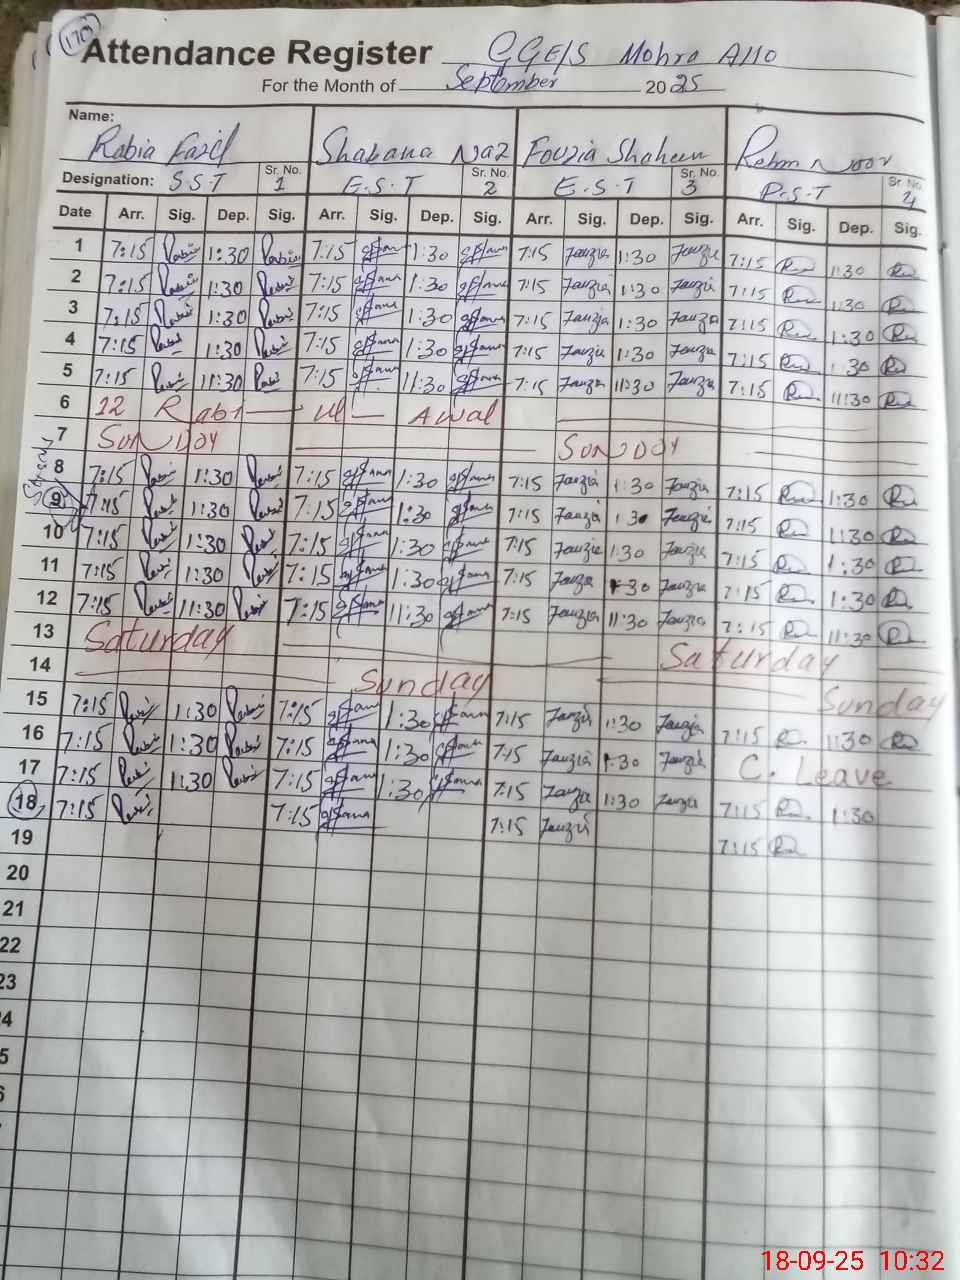 170
Attendance Register GGE/S Mohra Allo
For the Month of September 2025
Name:
Rabia Fazil Shabana Naz Fouzia Shaheen Rehm Noor
Designation: S.S.T Sr. No. 1 E.S.T Sr. No. 2 E.S.T Sr. No. 3 P.S.T Sr. No. 4
Date Arr. Sig. Dep. Sig. Arr. Sig. Dep. Sig. Arr. Sig. Dep. Sig. Arr. Sig. Dep. Sig.
1 7:15 Rabia 1:30 Rabia 7:15 1:30 7:15 Fauzia 1:30 Fauzia 7:15 1:30
2 7:15 Rabia 1:30 Rabia 7:15 1:30 7:15 Fauzia 1:30 Fauzia 7:15 1:30
3 7:15 Rabia 1:30 Rabia 7:15 1:30 7:15 Fauzia 1:30 Fauzia 7:15 1:30
4 7:15 Rabia 1:30 Rabia 7:15 1:30 7:15 Fauzia 1:30 Fauzia 7:15 1:30
5 7:15 Rabia 11:30 Rabia 7:15 11:30 7:15 Fauzia 11:30 Fauzia 7:15 11:30
6 12 Rabi ul Awal
7 SUNDAY SUNDAY
8 7:15 Rabia 1:30 Rabia 7:15 1:30 7:15 Fauzia 1:30 Fauzia 7:15 1:30
9 7:15 Rabia 1:30 Rabia 7:15 1:30 7:15 Fauzia 1:30 Fauzia 7:15 1:30
10 7:15 Rabia 1:30 Rabia 7:15 1:30 7:15 Fauzia 1:30 Fauzia 7:15 1:30
11 7:15 Rabia 1:30 Rabia 7:15 1:30 7:15 Fauzia 1:30 Fauzia 7:15 1:30
12 7:15 Rabia 11:30 Rabia 7:15 11:30 7:15 Fauzia 11:30 Fauzia 7:15 11:30
13 Saturday Saturday
14 Sunday Sunday
15 7:15 Rabia 1:30 Rabia 7:15 1:30 7:15 Fauzia 1:30 Fauzia 7:15 1:30
16 7:15 Rabia 1:30 Rabia 7:15 1:30 7:15 Fauzia 1:30 Fauzia C. Leave
17 7:15 Rabia 1:30 Rabia 7:15 1:30 7:15 Fauzia 1:30 Fauzia 7:15 1:30
18 7:15 Rabia 7:15 7:15 Fauzia 7:15
19
20
21
22
23
4
5
6
18-09-25 10:32